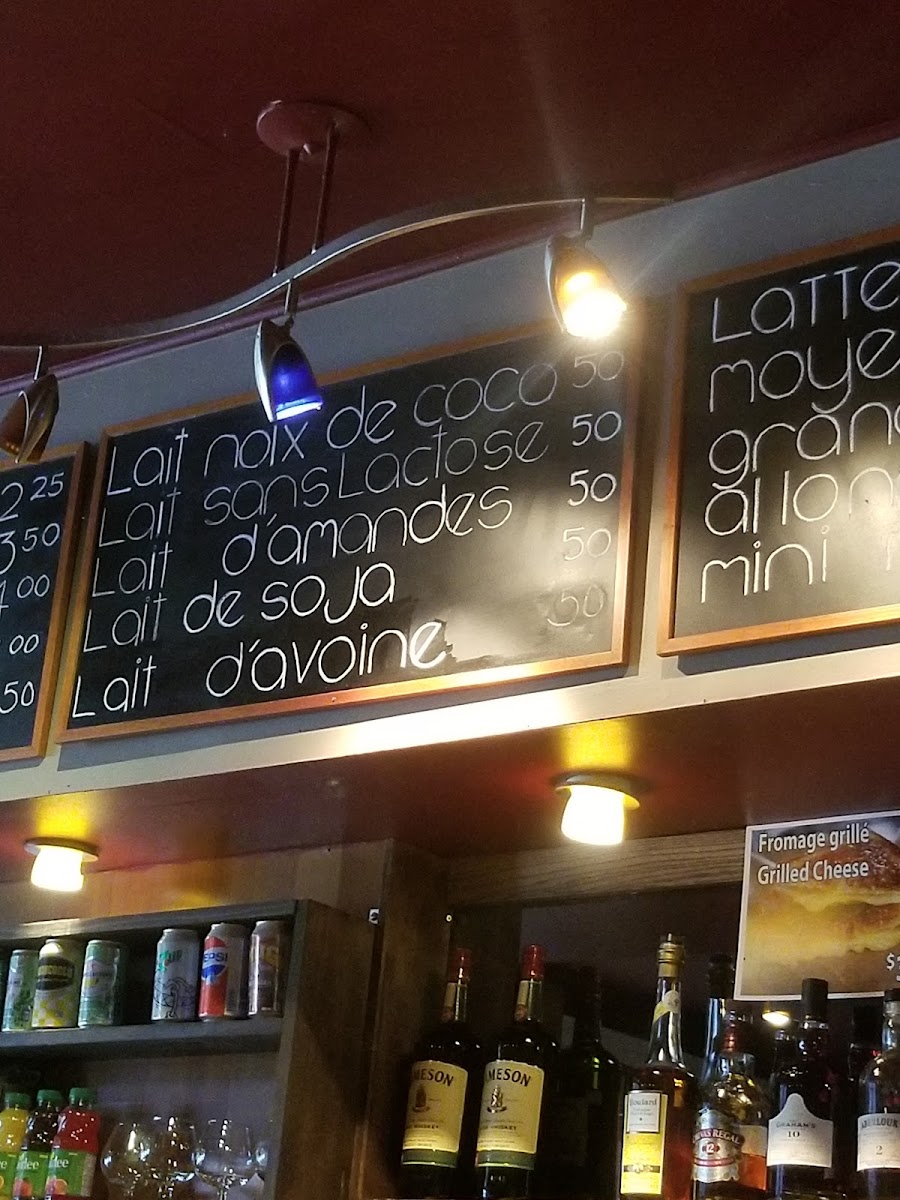 2 25
3 50
00
00
50
Lait noix de coco 50
Lait sans Lactose 50
Lait d'amandes 50
Lait de soja 50
Lait d'avoine 50
Latte
moye
grand
allon
mini
Fromage grillé
Grilled Cheese
$
PEPSI
JAMESON
JAMESON
CHIVAS REGAL
12
GRAHAM'S
10